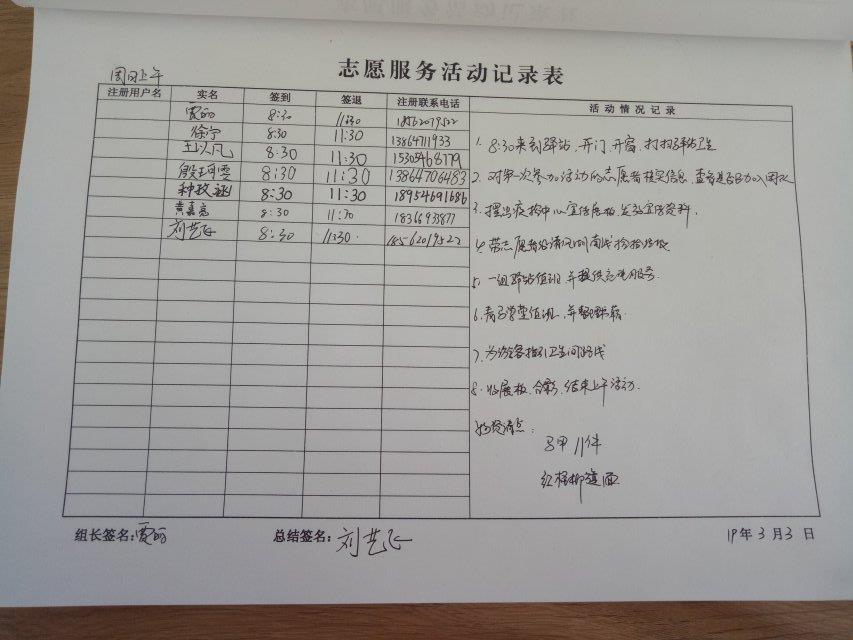 周日上午
志愿服务活动记录表
注册用户名 实名 签到 签退 注册联系电话 活动情况记录
贾丽 8:30 11:30 18562019522
徐宁 8:30 11:30 13864711933
王以凡 8:30 11:30 15305468179
殷珂雯 8:30 11:30 13864706483
种政涵 8:30 11:30 18954691686
黄嘉亮 8:30 11:30 18366933877
刘艺飞 8:30 11:30 18562019522
1. 8:30来到驿站,开门、开窗,打扫驿站卫生
2. 对第一次参加活动的志愿者核实信息 查看是否已加入团队
3. 摆出疾控中心宣传展板,发放宣传资料.
4. 带志愿者沿清风湖南线捡拾垃圾
5. 一组驿站值班,并提供充电服务.
6. 值班,并整理
7. 为游客指引卫生间路线
8. 收展板、合影、结束上午活动.
物资清点:
马甲 11件
红 面
组长签名:贾丽 总结签名:刘艺飞 19年3月3日